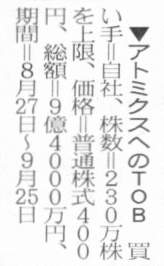 ▼アトミクスへのTOB 買
い手＝自社、株数＝230万株
を上限、価格＝普通株式400
円、総額＝9億4000万円、
期間＝8月27日～9月25日